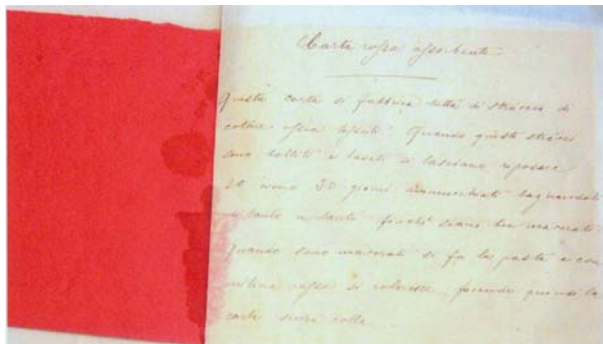 Carta rossa assorbente.
Questa carta si fabbrica tutta di stracci di
cotone ossia tessuti. Quando questi stracci
sono bolliti e lavati si lasciano riposare
30 giorni ammucchiati bagnandoli
di tanto in tanto finché siano ben macerati.
Quando sono macerati si fa la pasta e con
rosso si colorisce, facendo quindi la
carta senza colla.